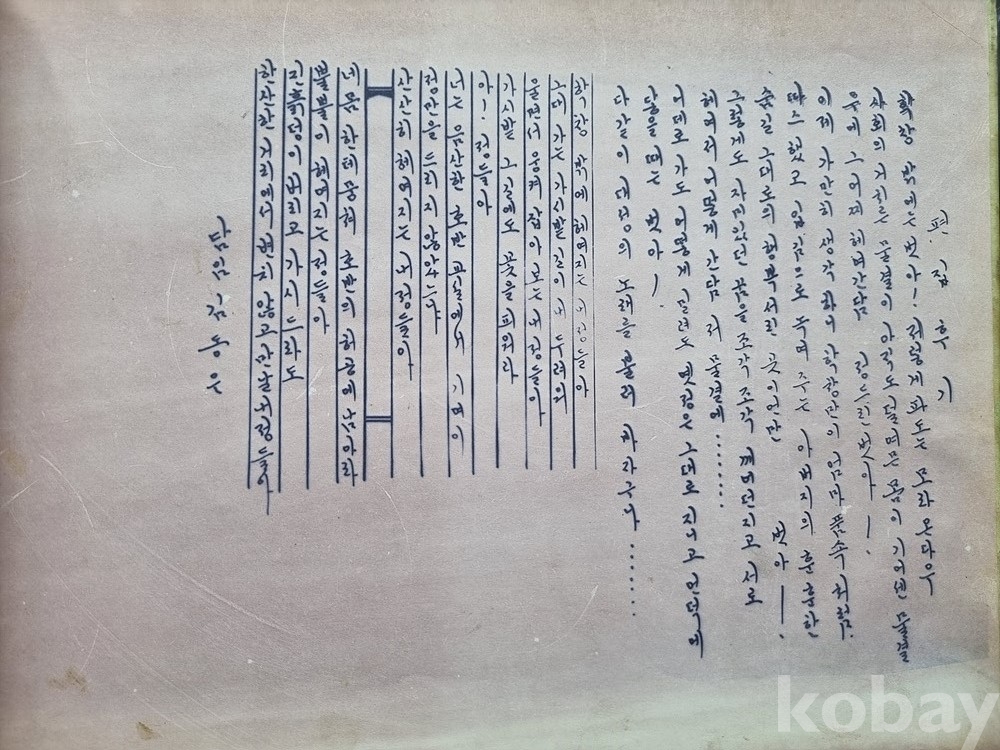 편 집 후 기
학창 밖에는 벗아! 저렇게 파도는 모라 온다우
사회의 거치른 물결이 아직도 덜 여믄 몸의 기어편 물결
우에 그 어찌 헤여간담 정드린 벗아 ―!
이제 가만히 생각하니 학창만이 엄마 품속 처럼.
따스했고 입김으로 녹여 주는 아버지의 훈훈한
숨길 그대로의 행복서린 곳이언만 벗아 ―!
그렇게도 자미있던 꿈을 조각 조각 깨여 던지고 서로
헤여저 어떻게 간담 저 물결에.........
어데로 가도 어떻게 딩굴려도 옛정은 그대로 지니고 언덕의
닻을 떼는 벗아 /
다같이 대성의 노래를 불러 바라구나......
학창 밖에 헤여지는 내 정들아
그대 가는 가시밭 길이 내 두려워
울면서 웅켜 잡아 보는 내 정들아
가시밭 그 길에도 꽃을 피워라
아! 정들아
너는 음산한 호반 교실에서 기여이
정만을 드리지 않았느냐
산산히 헤여지는 내 정들아
네 몸 한테 뭉처 호반의 허공에 남아라
뿔뿔이 헤여지는 정들아
진흙덩이 뿌리고 가시 드라도
한산한 거리에서 변치 않고 만날 내 정들아
담임 김동우
kobay